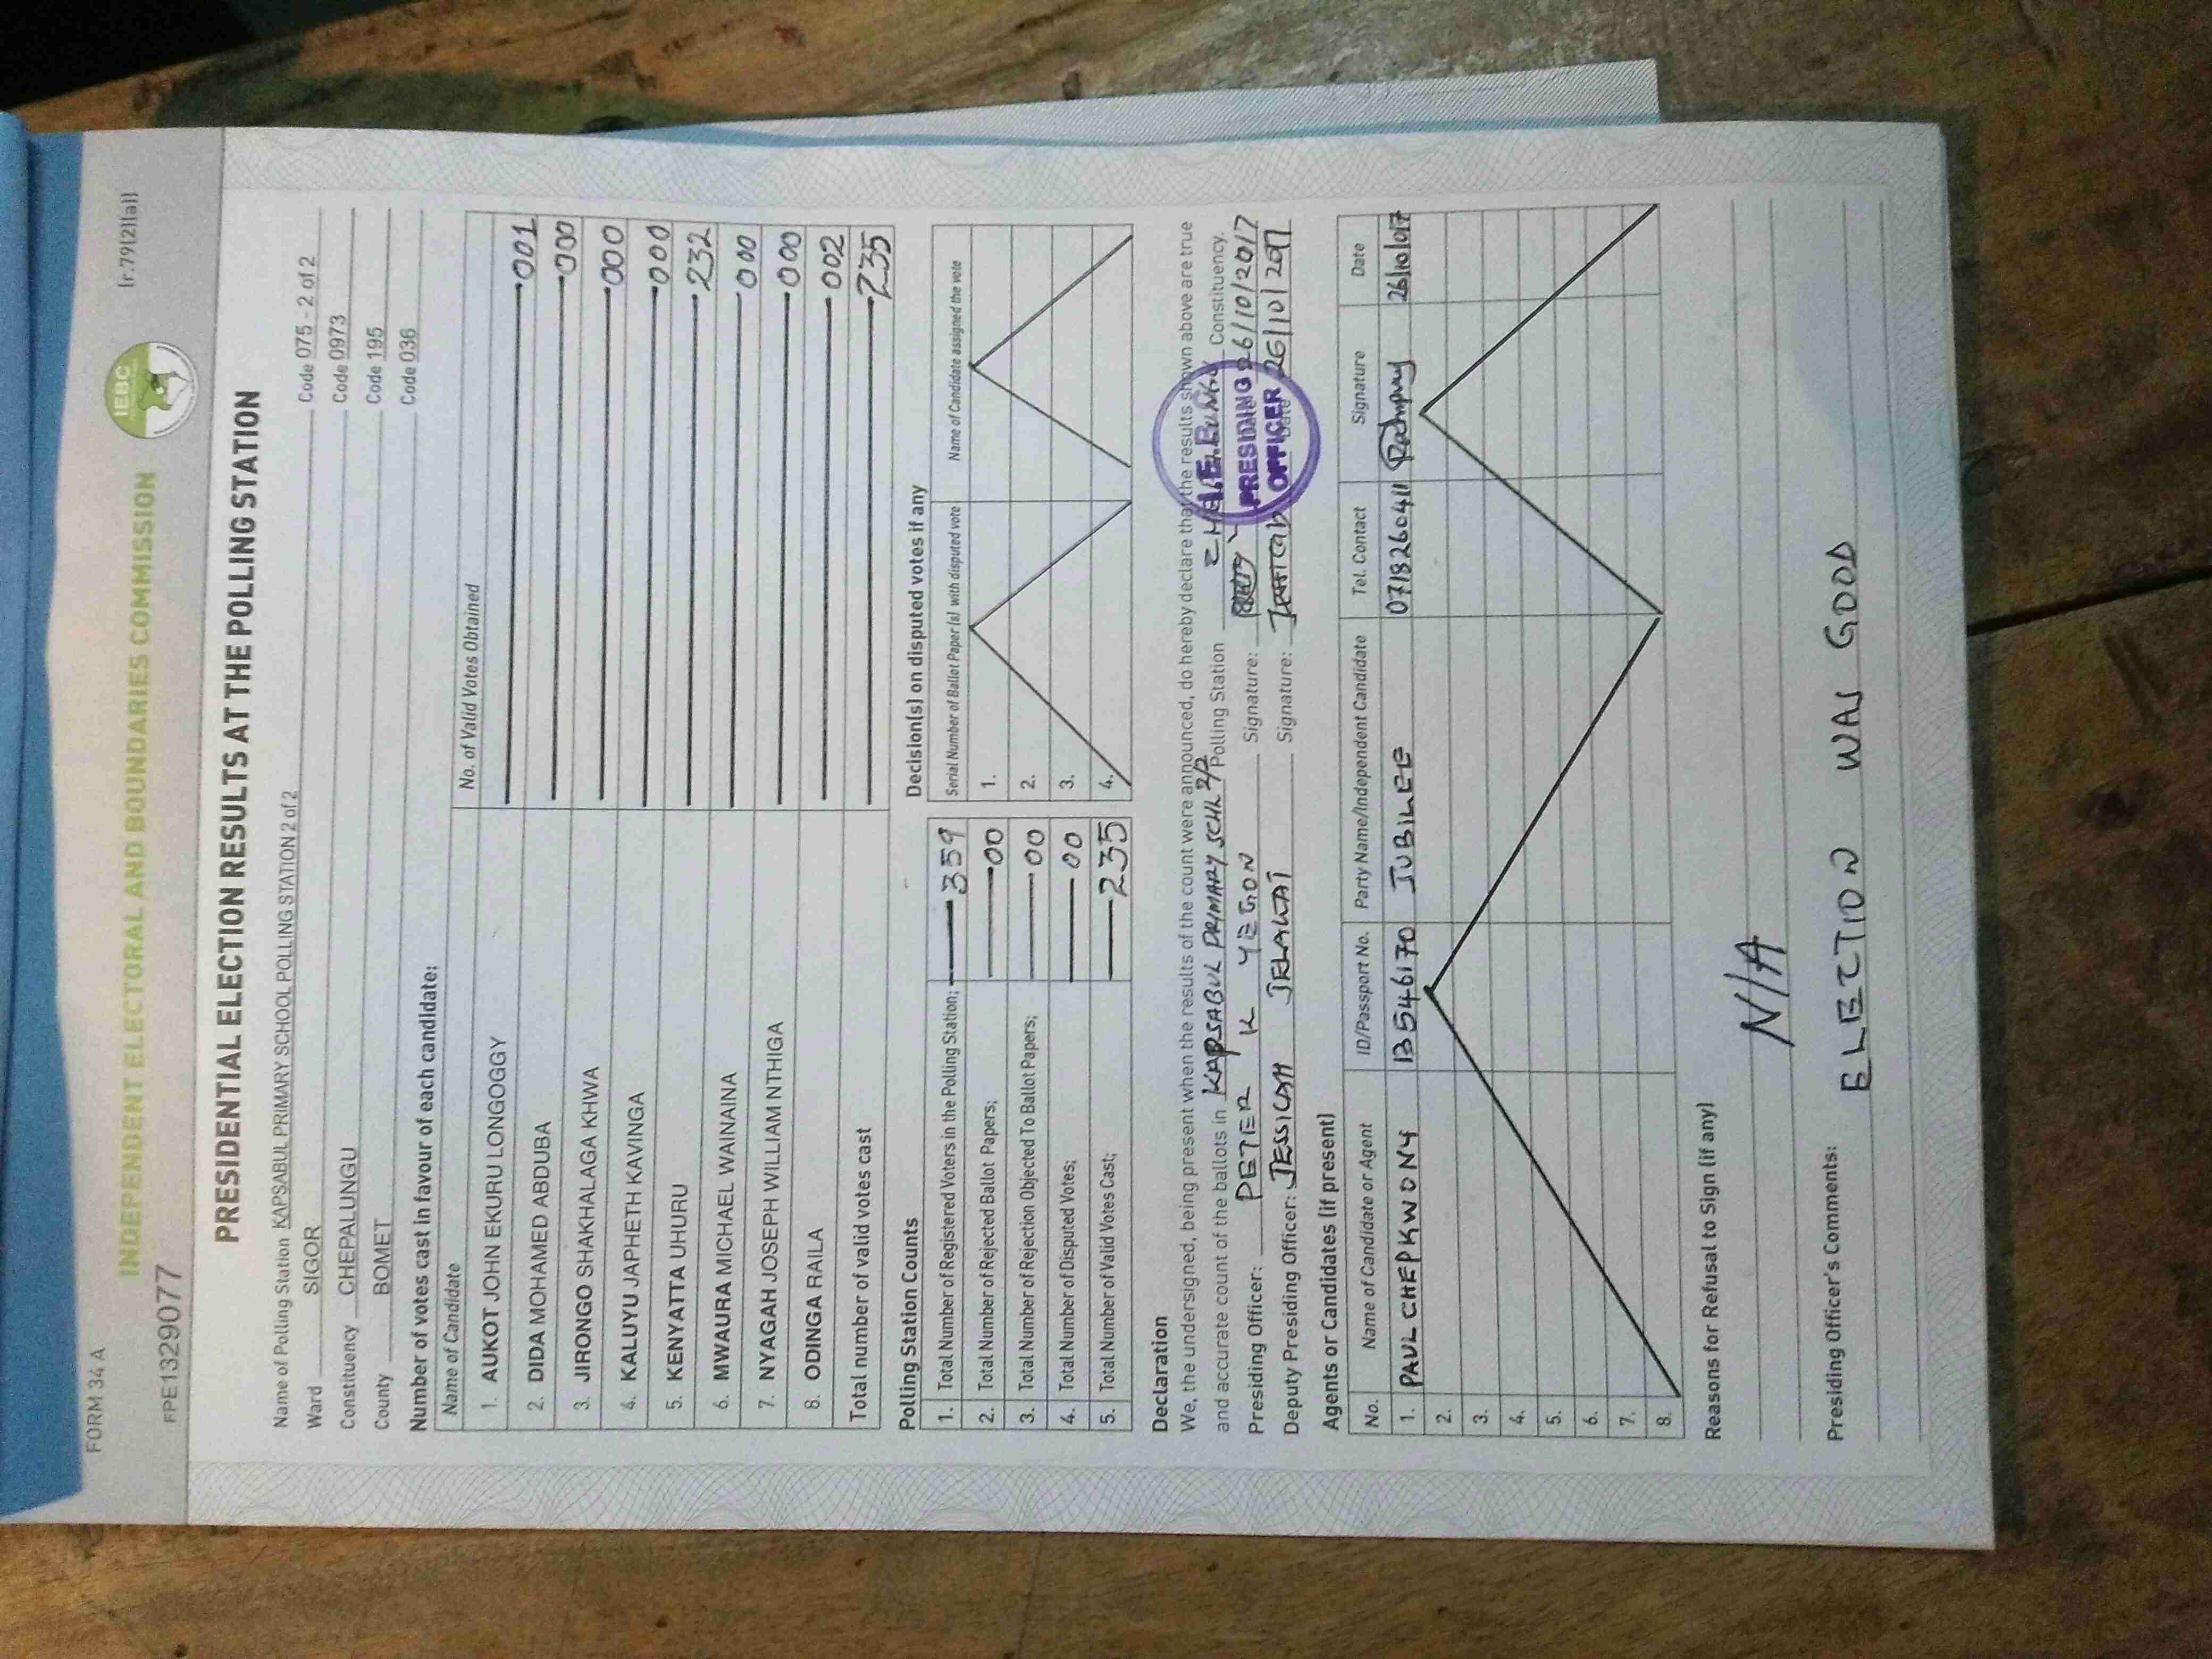 FORM 34 A
INDEPENDENT ELECTORAL AND BOUNDARIES COMMISSION
IEBC
(r.79(2)(a))
FPE1329077
PRESIDENTIAL ELECTION RESULTS AT THE POLLING STATION
Name of Polling Station KAPSABUL PRIMARY SCHOOL POLLING STATION 2 of 2 Code 075 - 2 of 2
Ward SIGOR Code 0973
Constituency CHEPALUNGU Code 195
County BOMET Code 036
Number of votes cast in favour of each candidate:
Name of Candidate No. of Valid Votes Obtained
1. AUKOT JOHN EKURU LONGOGGY 001
2. DIDA MOHAMED ABDUBA 000
3. JIRONGO SHAKHALAGA KHWA 000
4. KALUYU JAPHETH KAVINGA 000
5. KENYATTA UHURU 232
6. MWAURA MICHAEL WAINAINA 000
7. NYAGAH JOSEPH WILLIAM NTHIGA 000
8. ODINGA RAILA 002
Total number of valid votes cast 235
Polling Station Counts
1. Total Number of Registered Voters in the Polling Station; 359
2. Total Number of Rejected Ballot Papers; 00
3. Total Number of Rejection Objected To Ballot Papers; 00
4. Total Number of Disputed Votes; 00
5. Total Number of Valid Votes Cast; 235
Decision(s) on disputed votes if any
Serial Number of Ballot Paper(s) with disputed vote Name of Candidate assigned the vote
1.
2.
3.
4.
Declaration
We, the undersigned, being present when the results of the count were announced, do hereby declare that the results shown above are true
and accurate count of the ballots in KAPSABUL PRIMARY SCHL 2/2 Polling Station Constituency.
Presiding Officer: PETER K YEGON Signature: 26/10/2017
Deputy Presiding Officer: JESSICAH Signature: Date 26/10/2017
PRESIDING OFFICER
Agents or Candidates (if present)
No. Name of Candidate or Agent ID/Passport No. Party Name/Independent Candidate Tel. Contact Signature Date
1. PAUL CHEPKWONY 13546170 JUBILEE 0718260411 26/10/017
2.
3.
4.
5.
6.
7.
8.
Reasons for Refusal to Sign (if any)
N/A
Presiding Officer's Comments:
ELECTION WAS GOOD